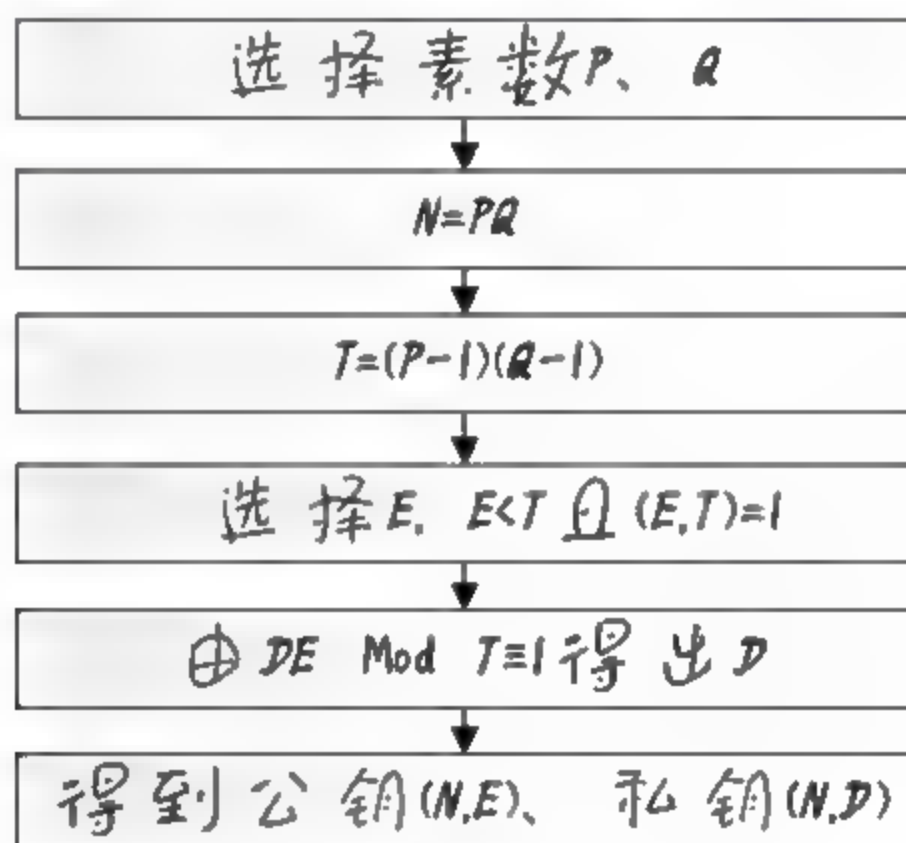 选择素数P、Q
N=PQ
T=(P-1)(Q-1)
选择E, E<T且(E,T)=1
由DE Mod T≡1得出D
得到公钥(N,E)、私钥(N,D)